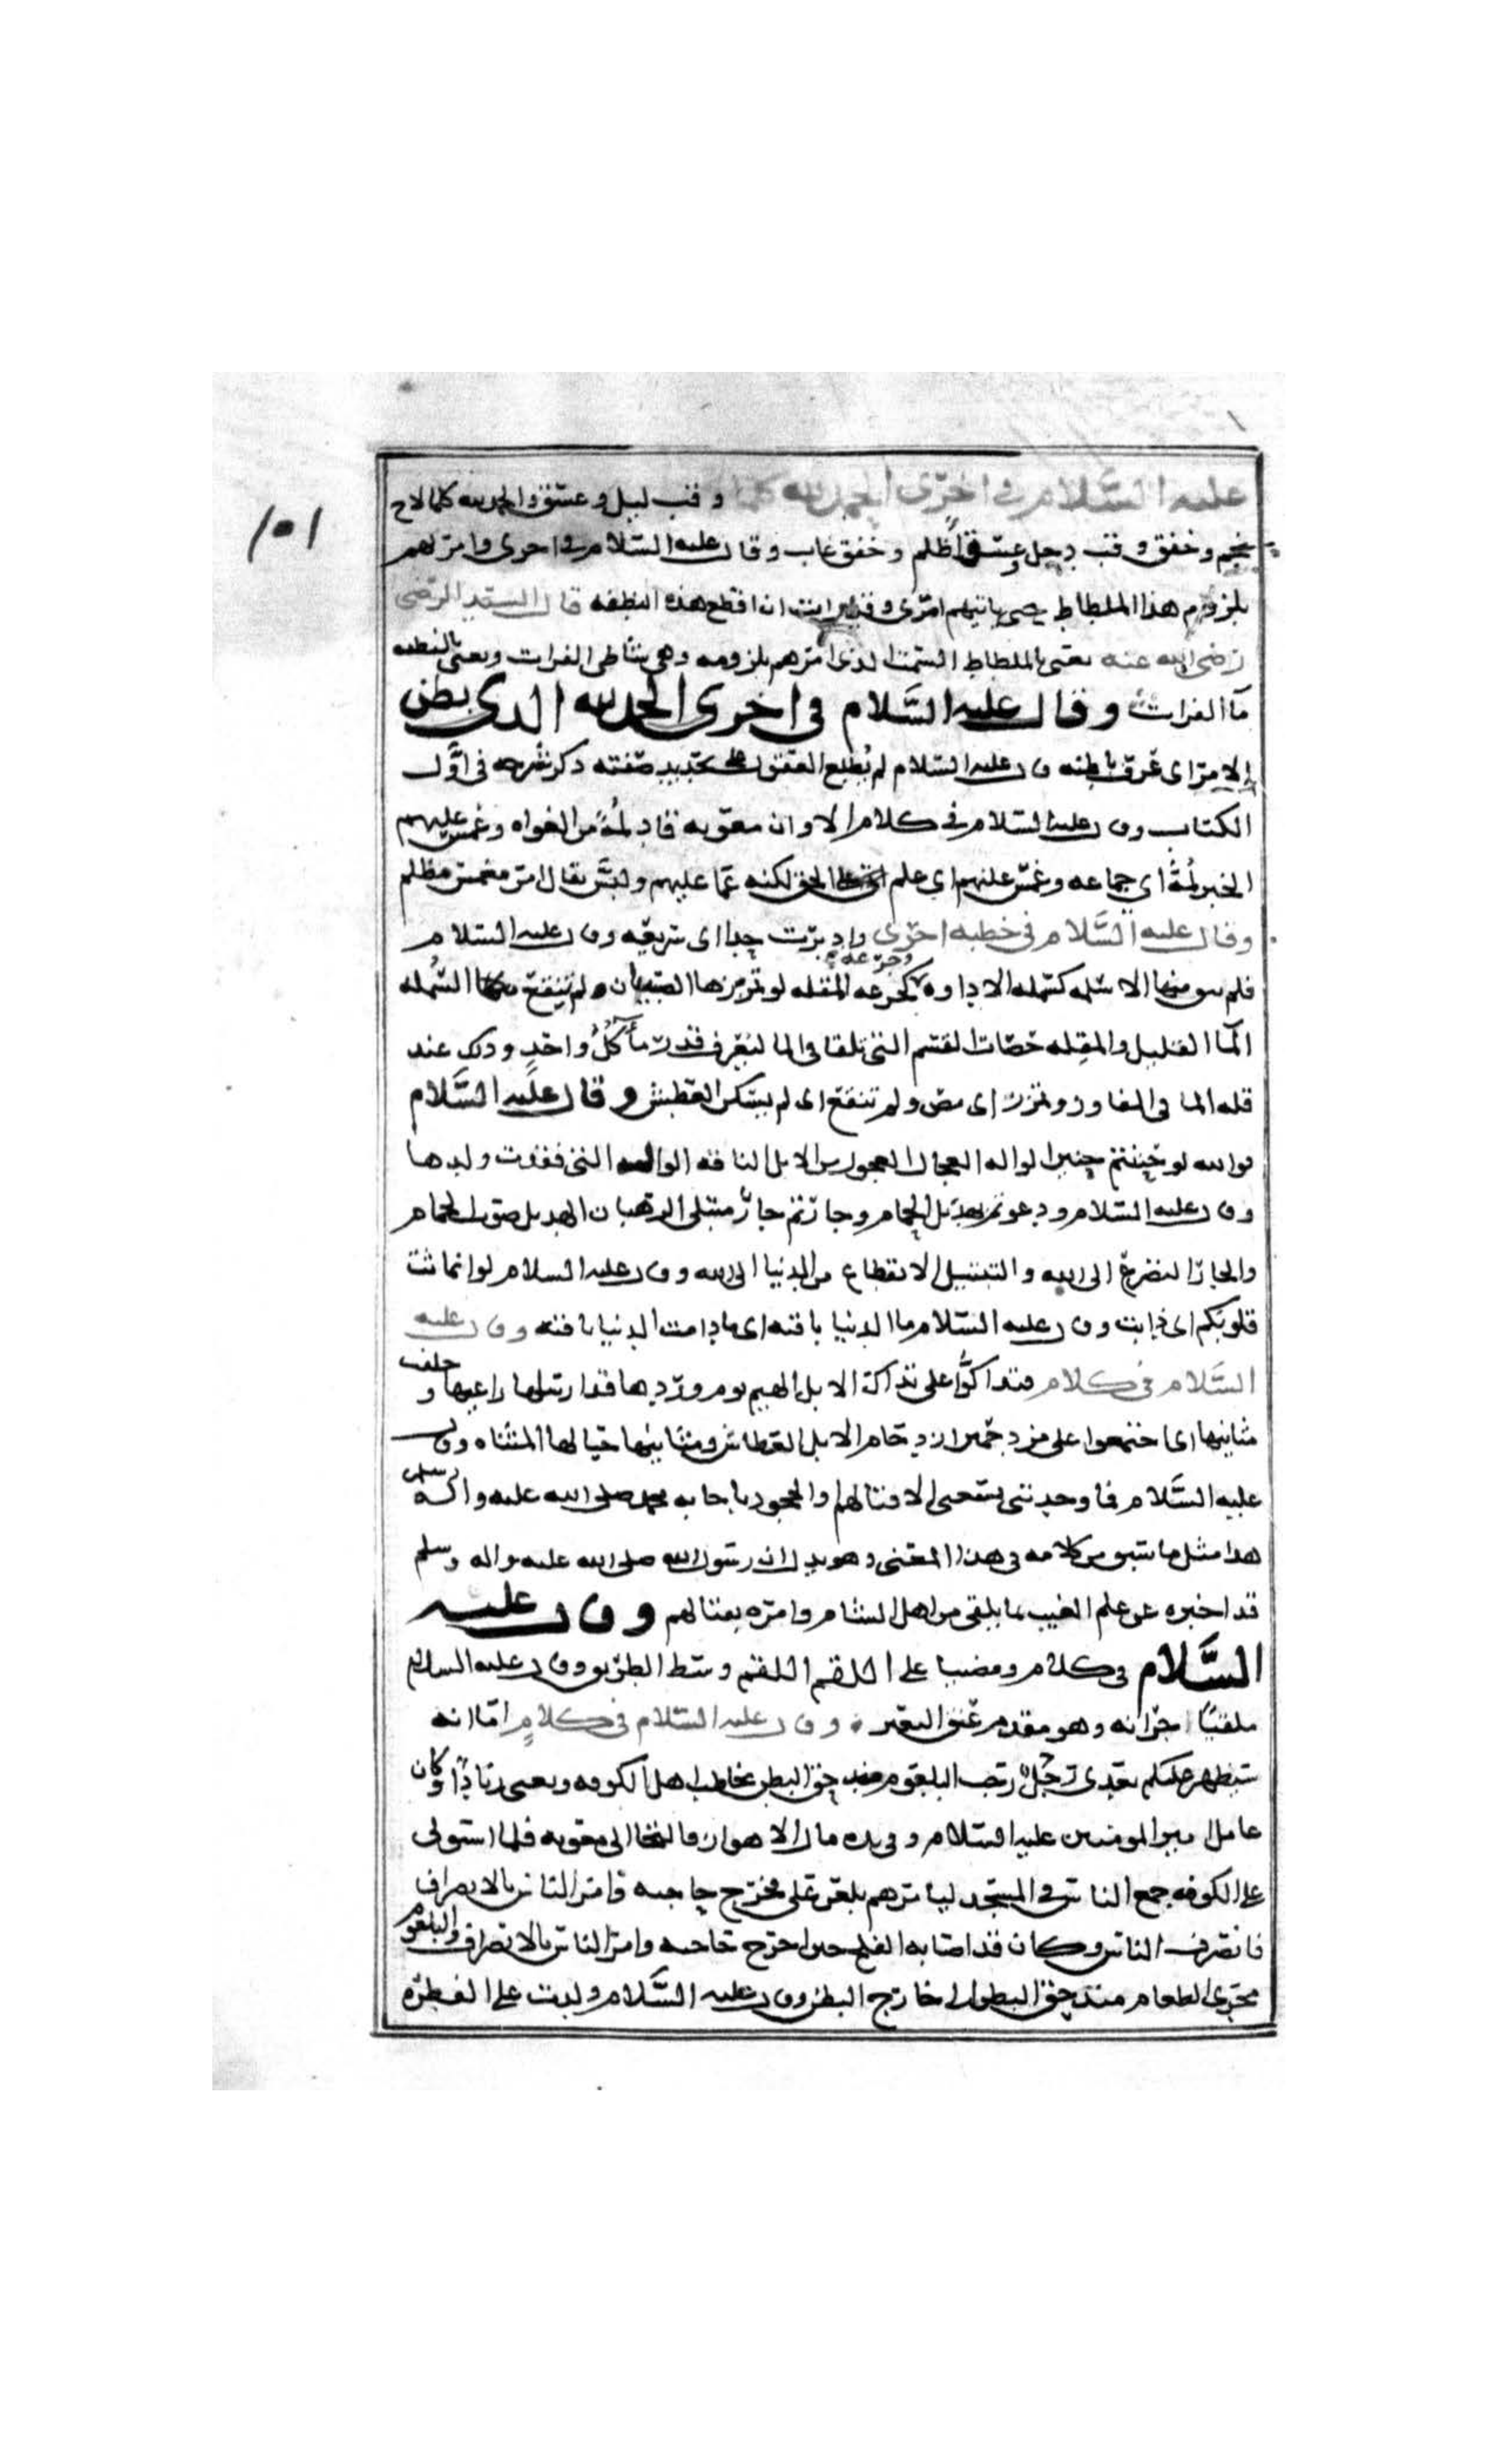 عليه السَّلام في اخرى الحمد لله كلما وقب ليل وغسق والحمد لله كلما لاح
نجم وخفق وقب دخل وغسق اظلم وخفق غاب وقال عليه السلام في اخرى وامرتهم
بلزوم هذا الملطاط حتى ياتيهم امرى وقد رايت ان اقطع هذه النطفه قال السيد الرضى
رضى الله عنه يعنى بالملطاط السمت الذى امرهم بلزومه وهى شاطى الفرات ويعنى بالنطفه
مآ الفرات وقال عليه السَّلام فى اخرى الحمد لله الذى بطن
الامر اى عرف باطنه وقال عليه السلام لم يُطلع العقول على تحديد صفته ذكر شرحه فى اوّل
الكتاب وقال عليه السلام فى كلام الا وان معويه قاد لُمَةً من الغواه وغمس عليهم
الخبر لُمَةً اى جماعه وغمس علنهم اى علم الحق لكنه عمّا عليهم ولبّس يقال امر مغمس مظلم
وقال عليه السَّلام فى خطبه اخرى وادبرت حذا اى سريعه وقال عليه السلام
فلم يبق منها الا سمله كسمله الاداوه وجرعه كجرعه المقله لو تمززها الصديان لم ينقع السُّمله
المآ القليل والمقله حصات القسم التى تلقا فى الما ليعرف قدر ما كلُّ واحدٍ وذلك عند
قله الما فى المفاوز وتمزز اى مص ولم تنقع اى لم يسكن العطش وقال عليه السَّلام
فوالله لو حننتم حنين الواله العجال العجول من الابل الناقه الواله التى فقدت ولدها
وقال عليه السلام ودعوتم بهديل الحمام وجأرتم جار متبتلى الرهبان الهديل صوت الحمام
والجار التضرع الى الله والتبتيل الانقطاع من الدنيا الى الله وقال عليه السلام لو انماثت
قلوبكم اى ذابت وقال عليه السلام ما الدنيا باقيه اى ما دامت الدنيا باقيه وقال عليه
السَّلام فى كلام فتداكّوا على تداك الابل الهيم يوم وردها قد ارسلها راعيها وخلعت
مثانيها اى اجتمعوا على مزدحمين ازدحام الابل العطاش ومثانيها حبالها المثناه وقال
عليه السَّلام فما وجدتنى يسعنى الا قتالهم او الجحود بما جا به محمد صلى الله عليه واله وسلم
هذا مثل ما سبق من كلامه فى هذا المعنى وهو يدل ان رسول الله صلى الله عليه واله وسلم
قد اخبره عن علم الغيب بما يلقى من اهل الشام وامره بقتالهم وقال عليه
السَّلام فى كلام ومضيا على اللقم اللقم وسط الطريق وقال عليه السلام
ملقيًا جرانه وهو مقدم عنق البعير وقال عليه السلام فى كلامٍ اما انه
سيظهر عليكم بعدى رجل رحب البلعوم مندحق البطن يخاطب اهل الكوفه ويعنى زيادًا وكان
عامل امير المومنين عليه السلام وفى يده مال الاهواز فالتجا الى معويه فلما استولى
على الكوفه جمع الناس فى المسجد ليامرهم بلعن على فخرج حاجبه فامر الناس بالانصراف
فانصرف الناس وكان قد اصابه الفلج حين اخرج حاجبه وامر الناس بالانصراف والبلعوم
مجرى الطعام مندحق البطن اى خارج البطن وقال عليه السَّلام ولدت على الفطره
١٥١